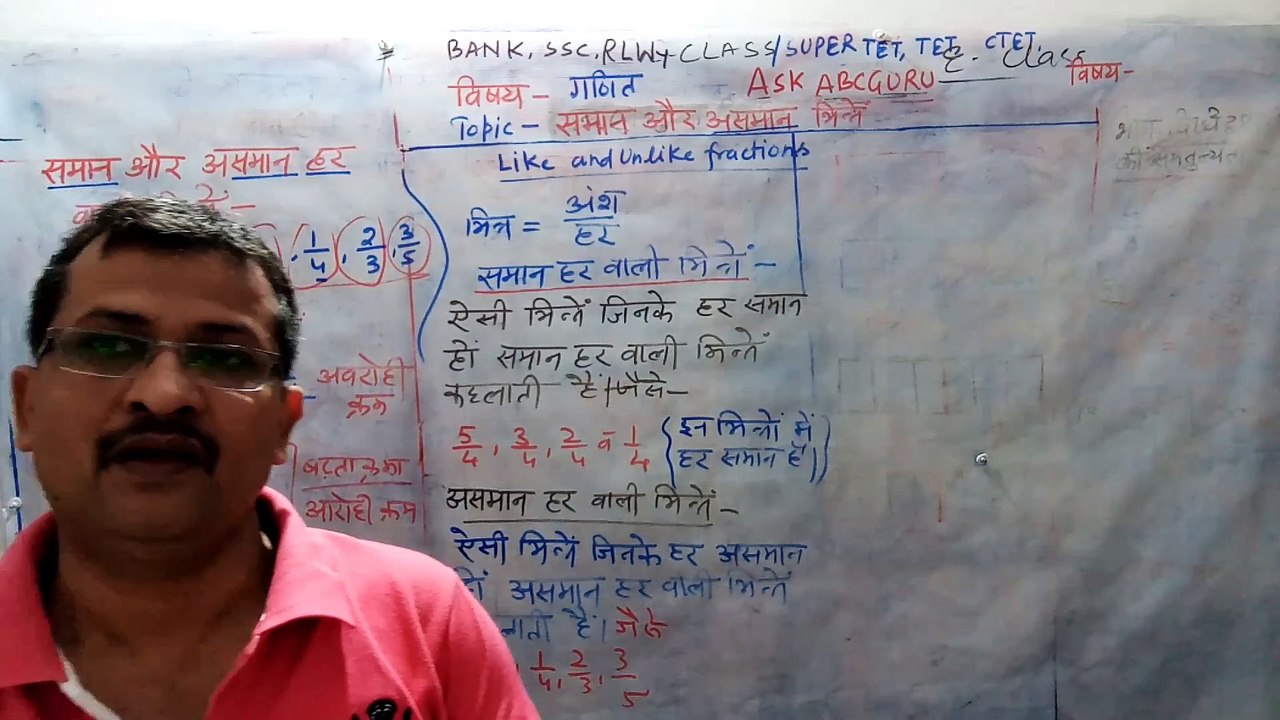 BANK, SSC, RLWY CLASS/SUPER TET, TET, CTET,
class
विषय - गणित
ASK ABCGURU
विषय-
Topic - समान और असमान भिन्नें
Like and Unlike fractions
समान और असमान हर
1/4, 2/3, 3/5
अवरोही
क्रम
बढ़ता क्रम
आरोही क्रम
भिन्न = अंश/हर
समान हर वाली भिन्नें -
ऐसी भिन्नें जिनके हर समान
हों समान हर वाली भिन्नें
कहलाती हैं। जैसे-
5/4, 3/4, 2/4 व 1/4 (इन भिन्नों में
हर समान है।)
असमान हर वाली भिन्नें -
ऐसी भिन्नें जिनके हर असमान
हों असमान हर वाली भिन्नें
हैं। जैसे
1/4, 2/3, 3/5